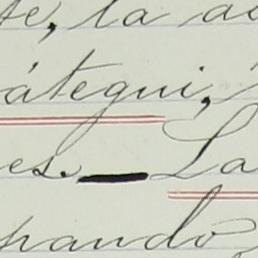 te, la
átegui,
es. — La
pando